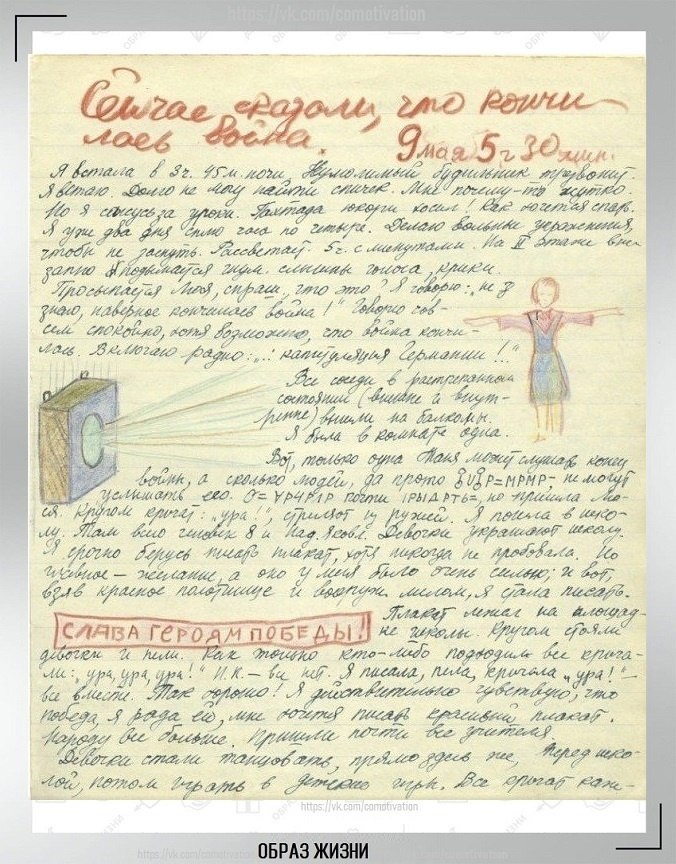 https://vk.com/comotivation
Сейчас сказали, что кончи-
лась война. 9 мая 5 ч 30 мин.
Я встала в 3 ч. 45 м. ночи. Неумолимый будильник трезвонит.
Я встаю. Долго не могу найти спичек. Мне почему-то жутко.
Но я сажусь за уроки. косил. Как хочется спать.
Я уже два дня сплю часа по четыре. Делаю вольные упражнения,
чтобы не заснуть. Рассветает. 5 ч. с минутами. На II этаже вне-
запно подымается шум. слышны голоса, крики.
Просыпается Люся, спраш. что это? Я говорю: „не
знаю, наверное кончилась война!" Говорю сов-
сем спокойно, хотя возможно, что война кончи-
лась. Включаю радио: „...капитуляция Германии!.."
Все соседи в растрепанном
состоянии (внешне и внут-
ренне) вышли на балконы.
Я была в комнате одна.
Вот, только одна Таня может слушать конец
войны, а сколько людей, да просто не могут
услышать его. почти не пришла Лю-
ся. Кругом кричат: „ура!", стреляют из ружей. Я пошла в шко-
лу. Там всего человек 8 и Над. Яковл. Девочки украшают школу.
Я срочно берусь писать плакат, хотя никогда не пробовала. Но
главное – желание, а оно у меня было очень сильно; и вот,
взяв красное полотнище и вооруж. мелом, я стала писать.
СЛАВА ГЕРОЯМ ПОБЕДЫ!!
Плакат лежал на площад-
ке школы. Кругом стояли
девочки и пели. Как только кто-либо подходил все крича-
ли: „ура, ура, ура!" И.К. – все нет. Я писала, пела, кричала „ура!" –
все вместе. Так хорошо! Я действительно чувствую, что
победа, я рада ей, мне хочется писать красивый плакат.
Народу все больше. Пришли почти все учителя.
Девочки стали танцовать, прямо здесь же, перед шко-
лой, потом играть в детские игры. Все кричат каж-
https://vk.com/comotivation
https://vk.com/comotivation
ОБРАЗ ЖИЗНИ